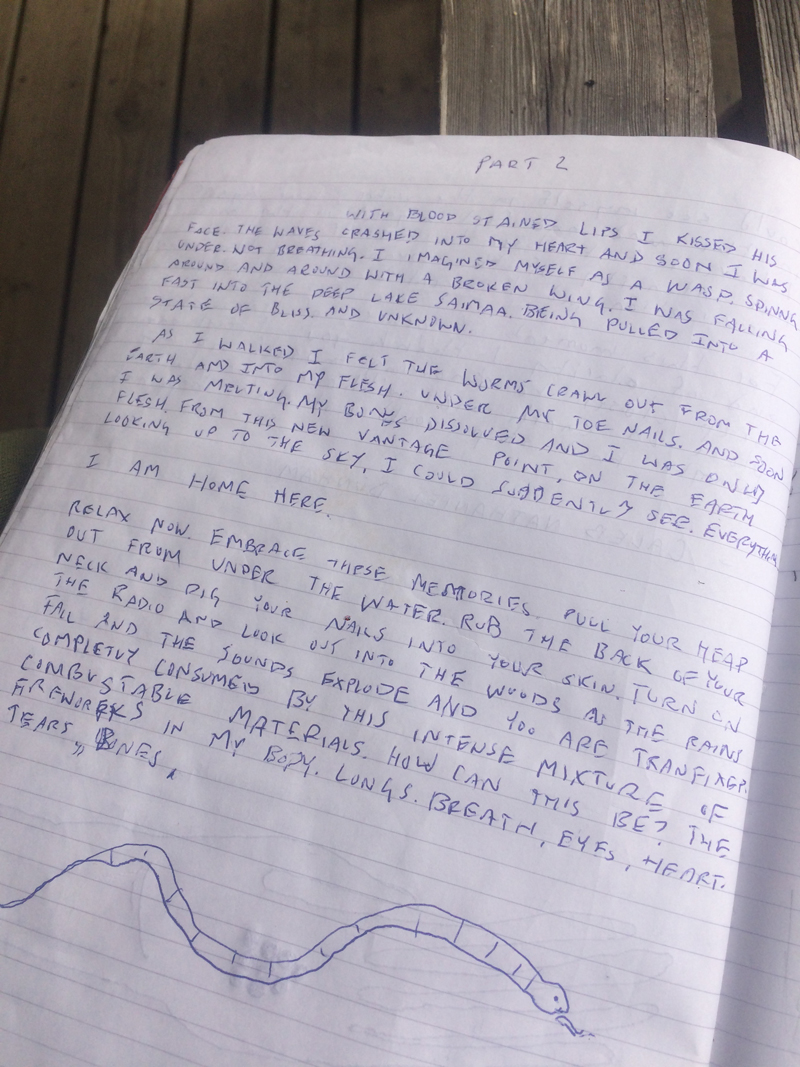 PART 2
WITH BLOOD STAINED LIPS I KISSED HIS
FACE. THE WAVES CRASHED INTO MY HEART AND SOON I WAS
UNDER. NOT BREATHING. I IMAGINED MYSELF AS A WASP. SPINNG
AROUND AND AROUND WITH A BROKEN WING. I WAS FALLING
FAST INTO THE DEEP LAKE SAIMAA. BEING PULLED INTO A
STATE OF BLISS. AND UNKNOWN.
AS I WALKED I FELT THE WORMS CRAWL OUT FROM THE
EARTH AND INTO MY FLESH. UNDER MY TOE NAILS. AND SOON
I WAS MELTING. MY BONES DISSOLVED AND I WAS ONLY
FLESH. FROM THIS NEW VANTAGE POINT, ON THE EARTH
LOOKING UP TO THE SKY, I COULD SUDDENTLY SEE. EVERYTHING
I AM HOME HERE.
RELAX NOW. EMBRACE THESE MEMORIES. PULL YOUR HEAD
OUT FROM UNDER THE WATER. RUB THE BACK OF YOUR
NECK AND DIG YOUR NAILS INTO YOUR SKIN. TURN ON
THE RADIO AND LOOK OUT INTO THE WOODS AS THE RAINS
FALL AND THE SOUNDS EXPLODE AND YOU ARE TRANFIXED.
COMPLETLY CONSUMED BY THIS INTENSE MIXTURE OF
COMBUSTABLE MATERIALS. HOW CAN THIS BE? THE
FIREWORKS IN MY BODY. LUNGS. BREATH, EYES, HEART.
TEARS, BONES,